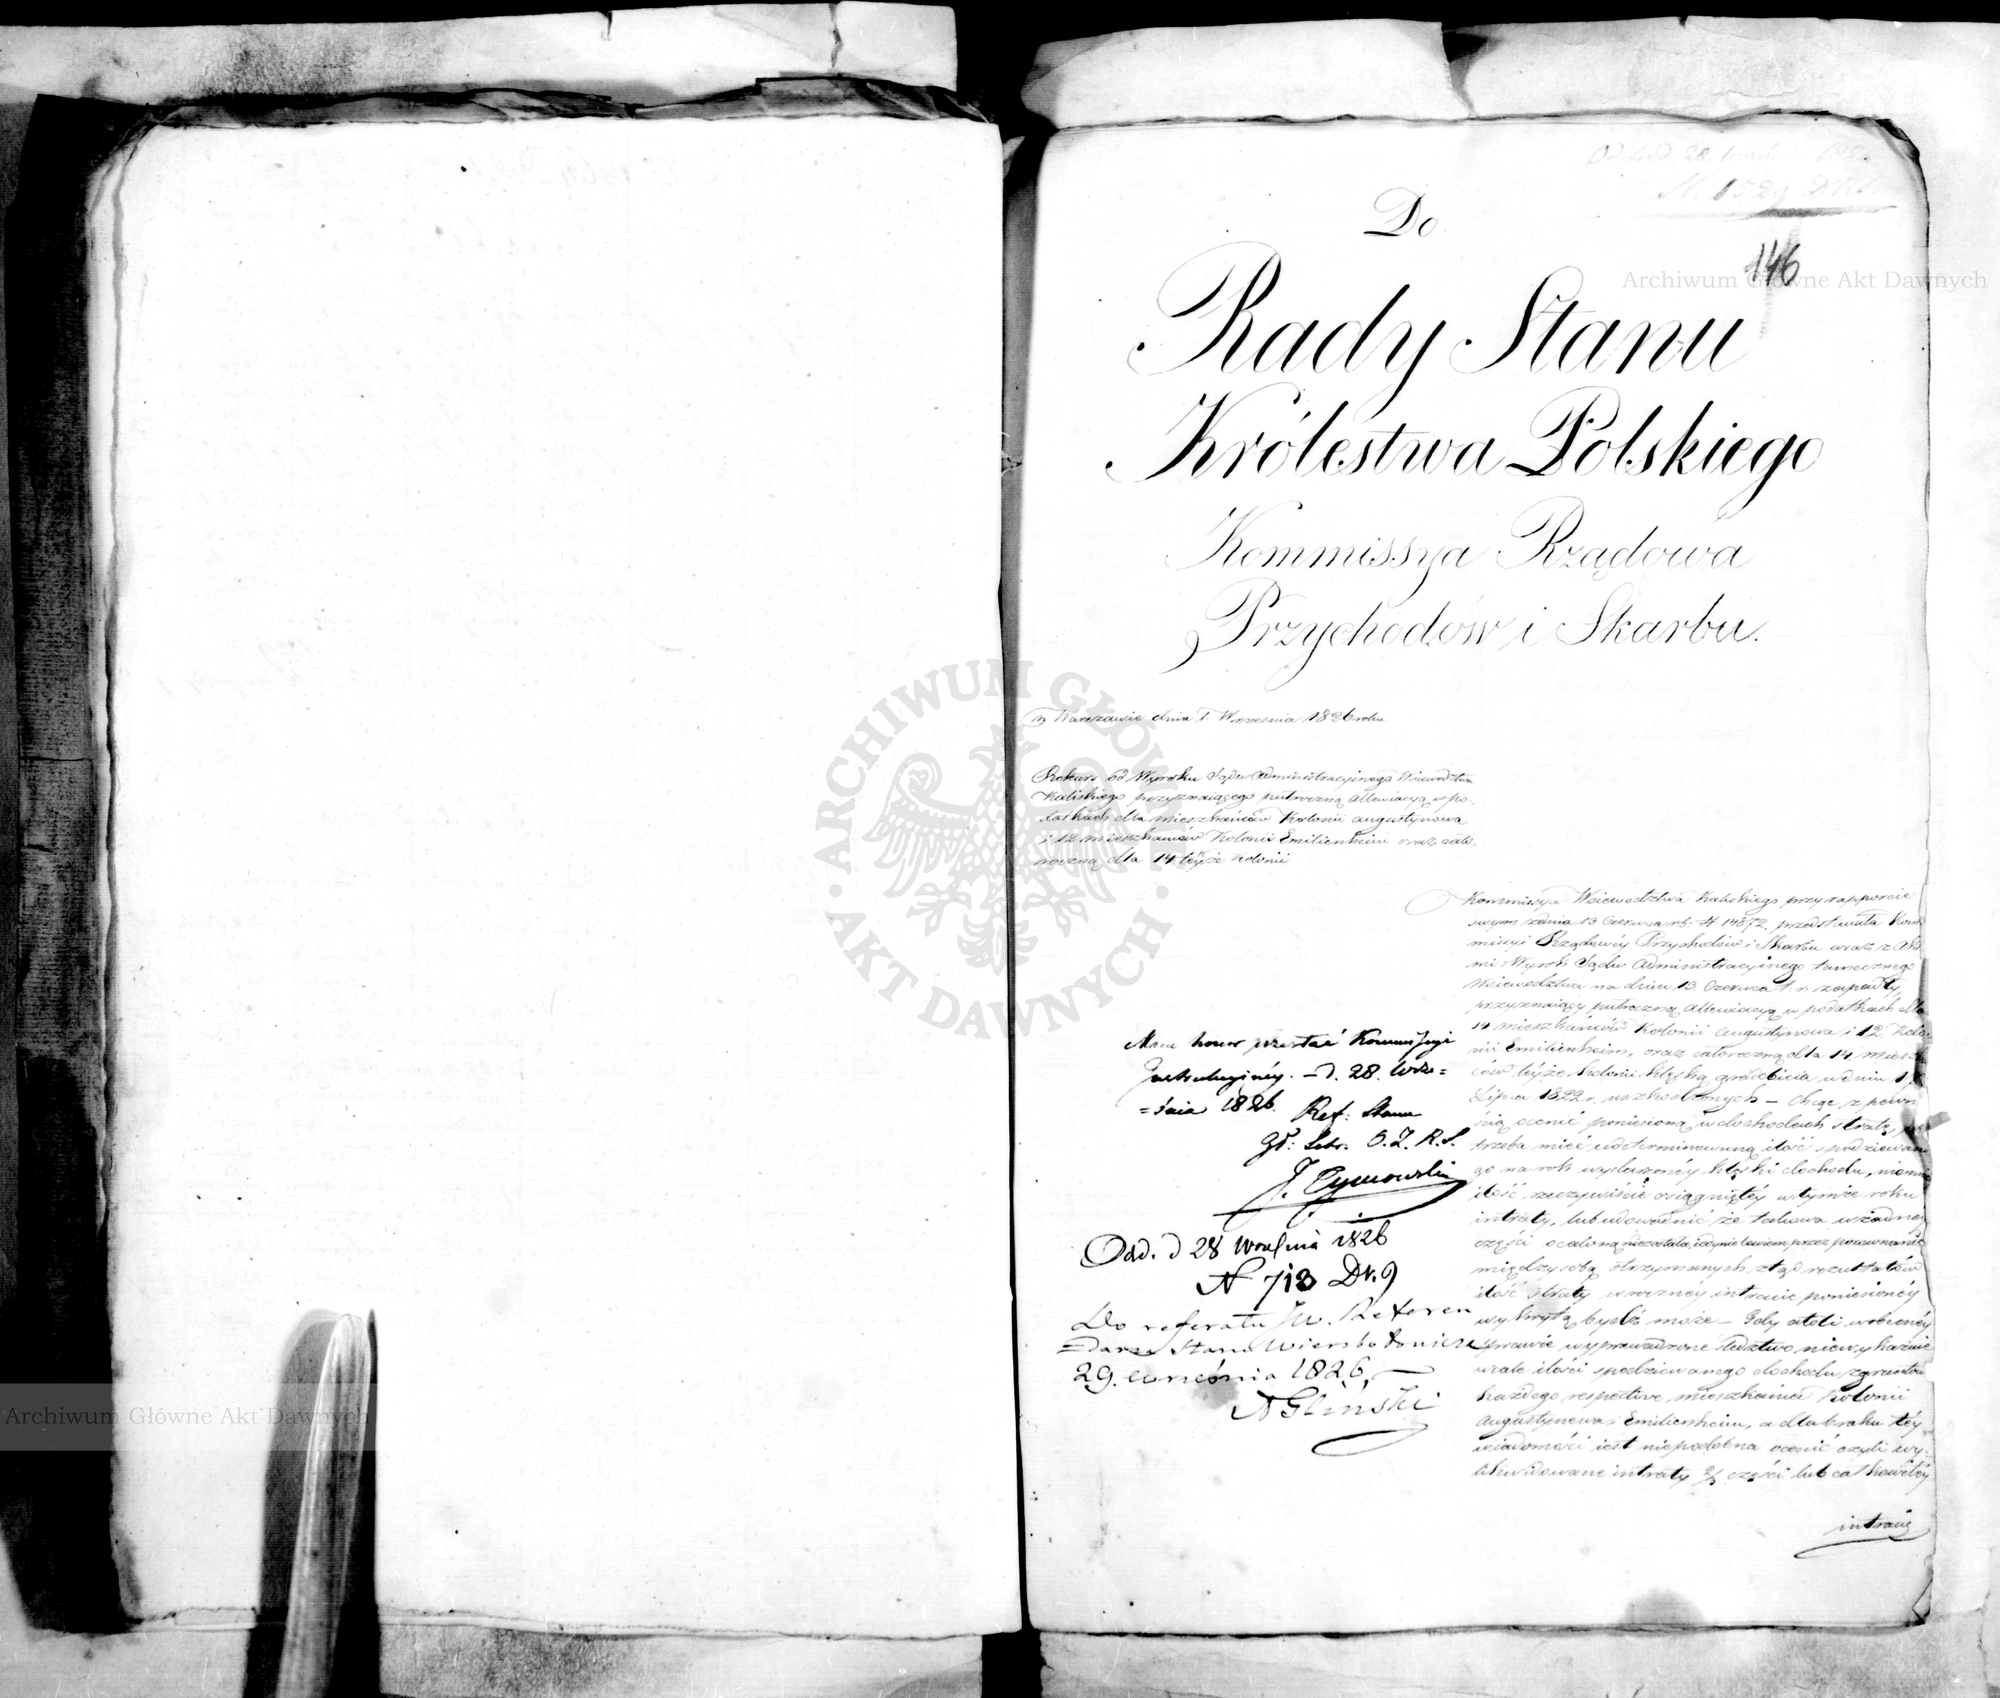 Do
146
Rady Stanu
Królestwa Polskiego
Kommissya Rządowa
Przychodów i Skarbu.
w Warszawie dnia 1. Września 1826 roku
Rekurs od Wyroku Sądu Administracyinego Woiewodztwa
Kaliskiego przyznaiącego putroczną allewiacyą w po-
datkach dla mieszkańców Kolonii Augustynowa
i 12 mieszkańców Kolonii Emilienheim oraz cało-
roczną dla 14 teyże Kolonii
Kommissya Woiewodztwa Kaliskiego przy rapporcie
swym z dnia 13 Czerwca rb: N 14872. przedstawiła Kom-
missyi Rządowéy Przychodów i Skarbu wraz z Akta-
mi Wyrok Sądu Administracyinego tamecznego
Woiewodztwa na dniu 10 Czerwca t. r. zapadły,
przyznaiący putroczną allewiacyą w podatkach dla
14 mieszkańców Kolonii Augustynowa i 12 Kolo-
nii Emilienheim, oraz całoroczną dla 14 miesz
ców teyże Kolonii klęską gradobicia w dniu 1
Lipca 1822 r. uszkodzonych – Chcąc z pewno
ścią ocenić poniesioną w dochodach stratę,
trzeba mieć udeterminowaną ilość spodziewane
go na rok wydarzonéy klęski dochodu, niemniey
ilość rzeczywiście osiągniętéy w tymże roku
intraty, lub udowodnić że takowa w żadnéy
części ocaloną niezostała, iedynie bowiem przez porownanie
między sobą otrzymanych ztąd rezultatów
ilość straty w roczney intracie poniesionéy
wykrytą bydź może – Gdy atoli w obecnéy
sprawie wyprowadzone śledztwo niewykazuie
wcale ilości spodziewanego dochodu z gruntów
każdego respective mieszkańca Kolonii
Augustynowa i Emilienheim, a dla braku téy
wiadomości iest niepodobna ocenić czyli wy-
likwidowane intraty 2/3 części lub całkowitéy
intraty
Mam honor przesłać Kommissyi
Instrukcyinéy. – d. 28. Wrze=
=śnia 1826. Ref: Stanu
Gł: Sekr. O. Z. R. S.
J. Tymowski
Odd. d 28 Września 1826
N 713 Dr. 9
Do referatu JW. Referen
=darza Stanu Wierzbołowicza
29. września 1826. –
A Gliński
Archiwum Główne Akt Dawnych
Archiwum Główne Akt Dawnych
ARCHIWUM GŁÓWNE AKT DAWNYCH